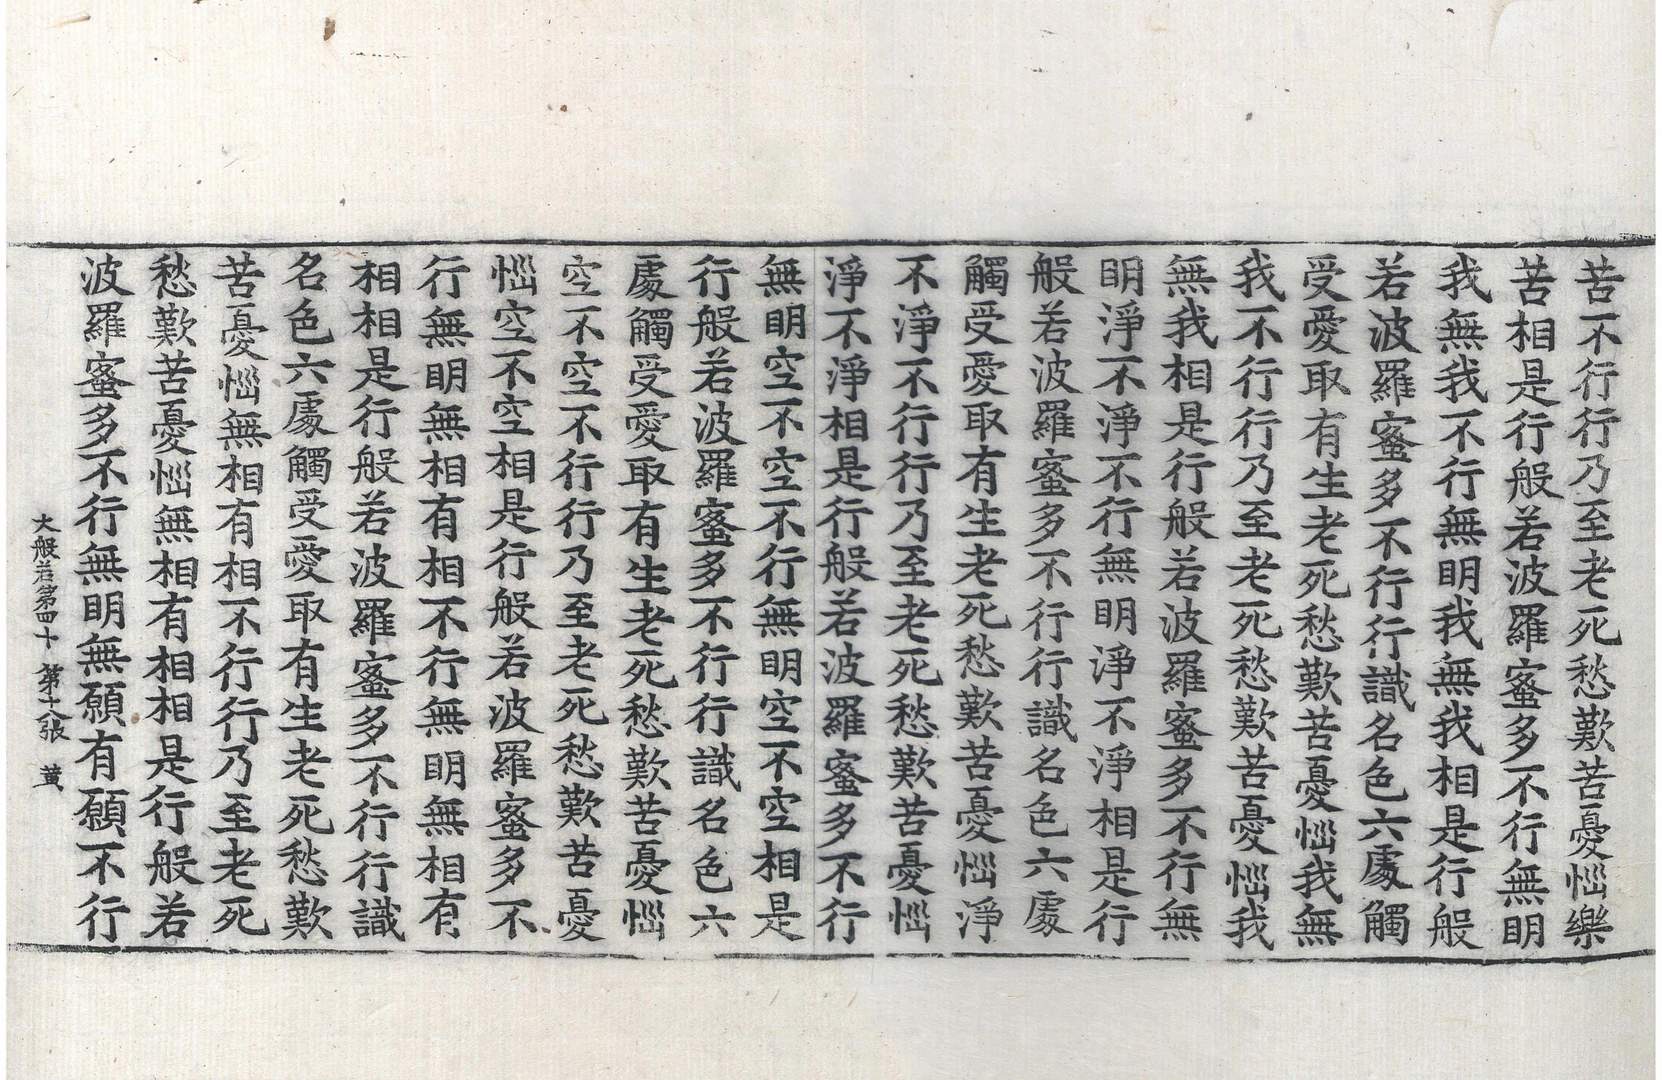 苦不行行乃至老死愁歎苦憂惱樂
苦相是行般若波羅蜜多不行無明
我無我不行無明我無我相是行般
若波羅蜜多不行行識名色六處觸
受愛取有生老死愁歎苦憂惱我無
我不行行乃至老死愁歎苦憂惱我
無我相是行般若波羅蜜多不行無
明淨不淨不行無明淨不淨相是行
般若波羅蜜多不行行識名色六處
觸受愛取有生老死愁歎苦憂惱淨
不淨不行行乃至老死愁歎苦憂惱
淨不淨相是行般若波羅蜜多不行
無明空不空不行無明空不空相是
行般若波羅蜜多不行行識名色六
處觸受愛取有生老死愁歎苦憂惱
空不空不行行乃至老死愁歎苦憂
惱空不空相是行般若波羅蜜多不
行無明無相有相不行無明無相有
相相是行般若波羅蜜多不行行識
名色六處觸受愛取有生老死愁歎
苦憂惱無相有相不行行乃至老死
愁歎苦憂惱無相有相相是行般若
波羅蜜多不行無明無願有願不行
大般若第四十 第十八張 黃